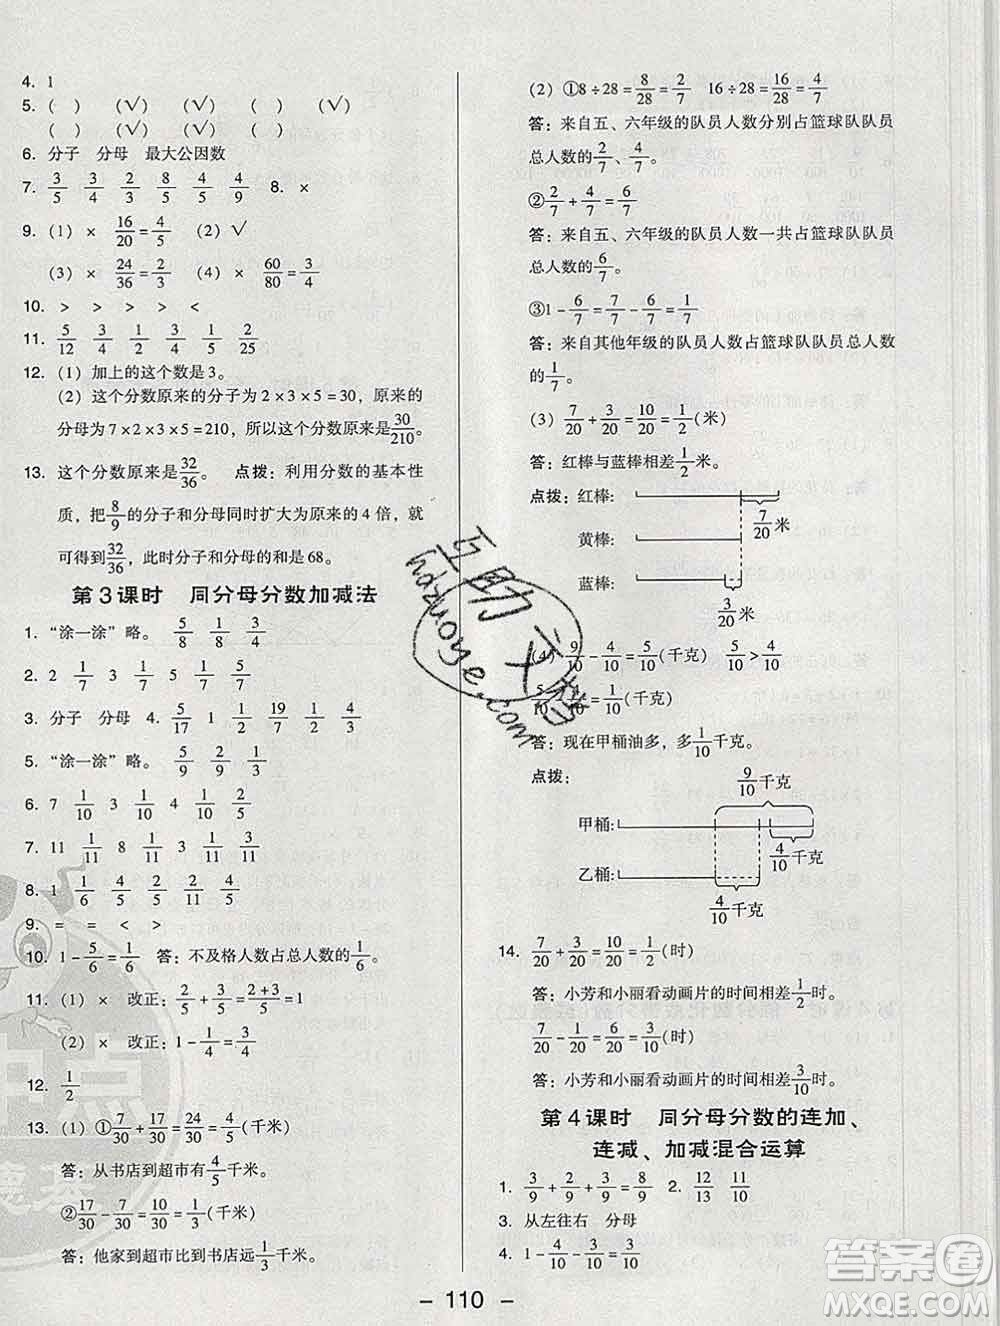 4. 1
5. ( ) (√) (√) ( ) (√)
( ) (√) (√) ( ) ( )
6. 分子 分母 最大公因数
7. 3/5 4/5 3/4 8/5 4/5 4/9 8. ×
9. (1) × 16/20=4/5 (2) √
(3) × 24/36=2/3 (4) × 60/80=3/4
10. > > > > <
11. 5/12 3/4 1/2 1/4 2/25
12. (1) 加上的这个数是3。
(2) 这个分数原来的分子为2×3×5=30,原来的
分母为7×2×3×5=210,所以这个分数原来是30/210。
13. 这个分数原来是32/36。 点拨:利用分数的基本性
质,把8/9的分子和分母同时扩大为原来的4倍,就
可得到32/36,此时分子和分母的和是68。
第3课时 同分母分数加减法
1. “涂一涂”略。 5/8 1/8 3/4
2. 1 1/7 3 1/7 4 4/7
3. 分子 分母 4. 5/17 1 1/2 19/7 1/2 4/3
5. “涂一涂”略。 5/9 2/9 3/9
6. 7 1/10 3 1/10 4 1/10 2/5
7. 11 1/11 8 1/11 3 3/11
8. 1 1/6 4/5 1/2 6/7 2/9
9. = = < >
10. 1-5/6=1/6 答:不及格人数占总人数的1/6。
11. (1) × 改正:2/5+3/5=2+3/5=1
(2) × 改正:1-1/4=3/4
12. 1/2
13. (1) ①7/30+17/30=24/30=4/5(千米)
答:从书店到超市有4/5千米。
②17/30-7/30=10/30=1/3(千米)
答:他家到超市比到书店远1/3千米。
(2) ①8÷28=8/28=2/7 16÷28=16/28=4/7
答:来自五、六年级的队员人数分别占篮球队队员
总人数的2/7、4/7。
②2/7+4/7=6/7
答:来自五、六年级的队员人数一共占篮球队队员
总人数的6/7。
③1-6/7=7/7-6/7=1/7
答:来自其他年级的队员人数占篮球队队员总人数
的1/7。
(3) 7/20+3/20=10/20=1/2(米)
答:红棒与蓝棒相差1/2米。
点拨:红棒:
7/20米
黄棒:
蓝棒:
3/20米
(4) 9/10-4/10=5/10(千克) 5/10>4/10
5/10-4/10=1/10(千克)
答:现在甲桶油多,多1/10千克。
点拨:
9/10千克
甲桶:
4/10千克
乙桶:
4/10千克
14. 7/20+3/20=10/20=1/2(时)
答:小芳和小丽看动画片的时间相差1/2时。
7/20-1/20=6/20=3/10(时)
答:小芳和小丽看动画片的时间相差3/10时。
第4课时 同分母分数的连加、
连减、加减混合运算
1. 3/9+2/9+3/9=8/9 2. 12/13 11/10
3. 从左往右 分母
4. 1-4/10-3/10=3/10
- 110 -
互助文档
hdzuoye.com
答案圈
MXQE.COM